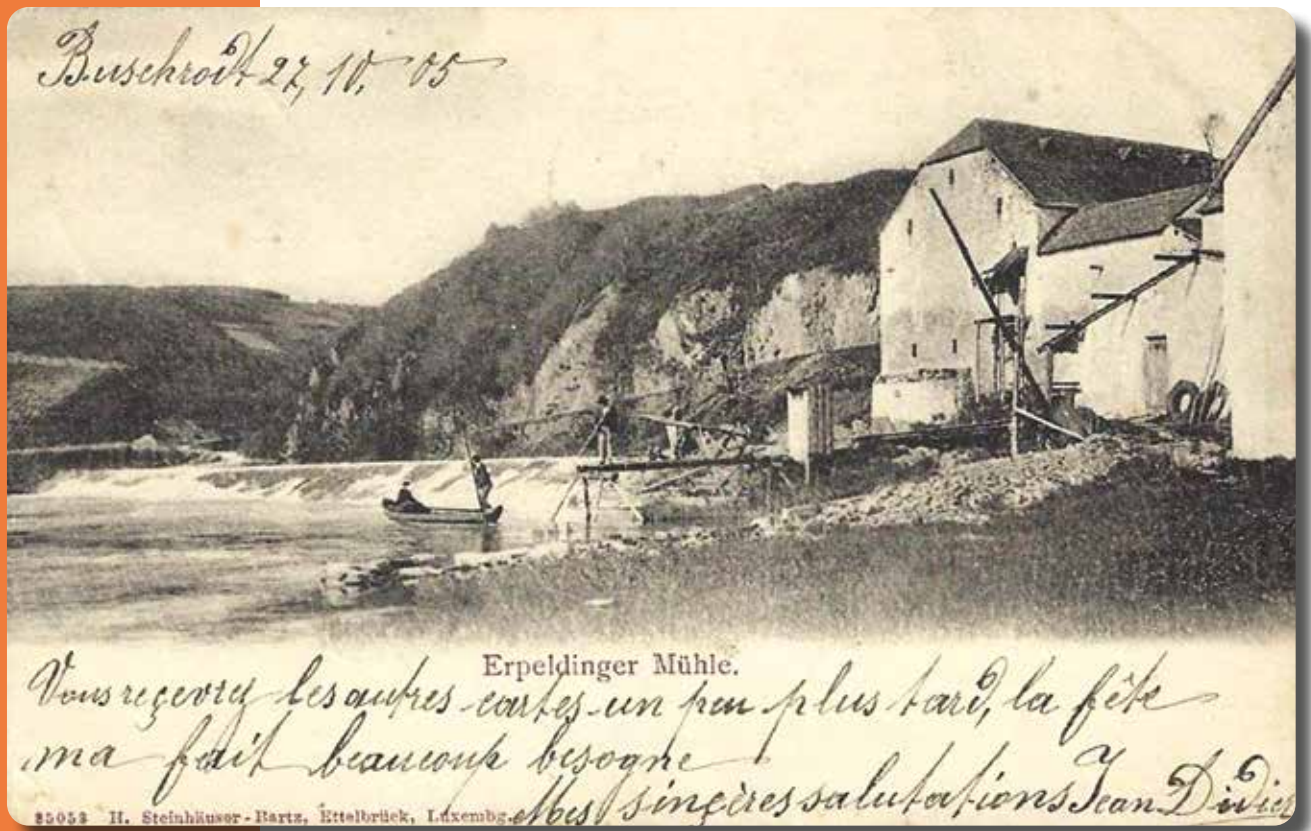 Buschrodt 27, 10, 05
Erpeldinger Mühle.
Vous reçevrez les autres cartes un peu plus tard, la fête
ma fait beaucoup besogne
Mes sinçères salutations Jean Didier
85053 H. Steinhäuser-Bartz, Ettelbrück, Luxembg.